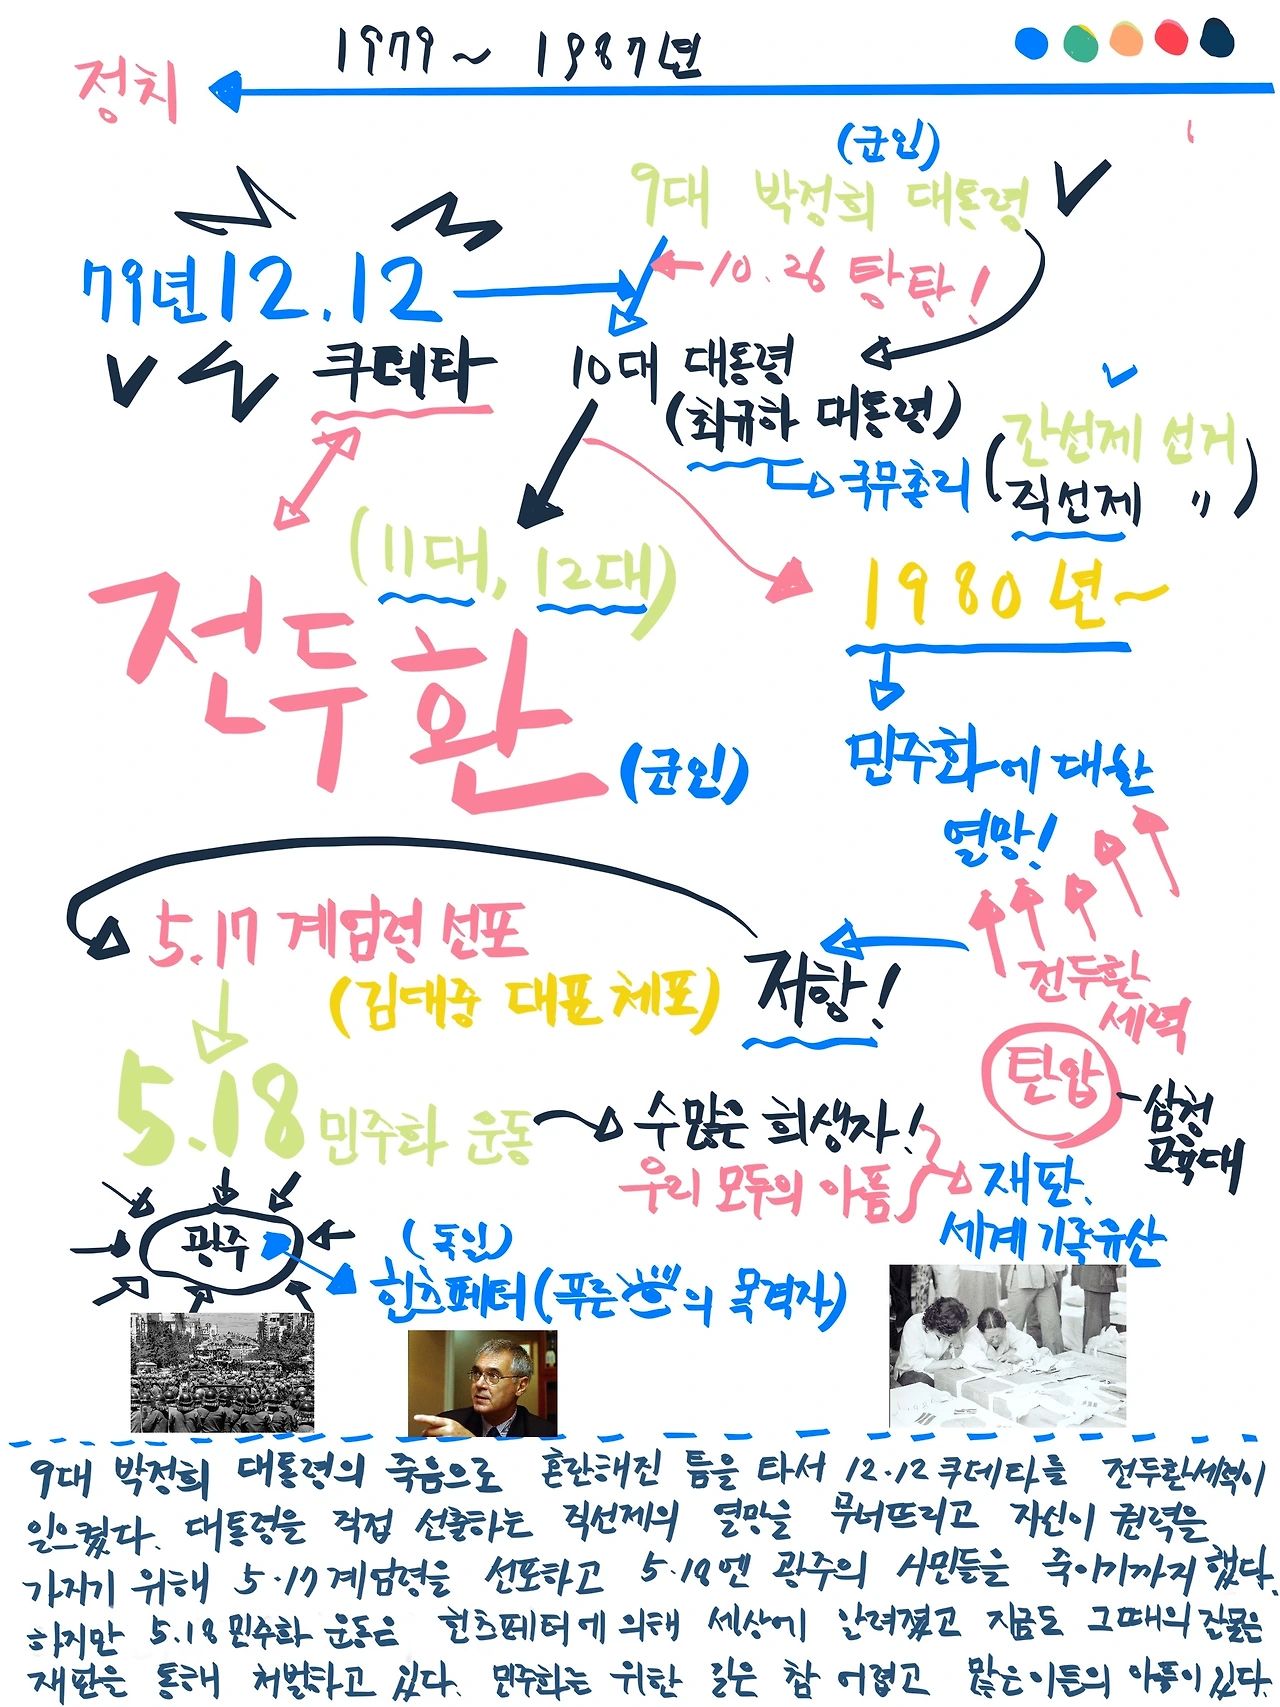 1979 ~ 1987년
정치
(군인)
9대 박정희 대통령
79년 12.12
10.26 탕탕!
쿠데타
10대 대통령
(최규하 대통령)
국무총리
(간선제 선거
직선제 〃)
(11대, 12대)
전두환
(군인)
1980년~
민주화에 대한
열망!
5.17 계엄령 선포
(김대중 대표 체포)
저항!
전두환
세력
탄압
삼청
교육대
5.18 민주화 운동
수많은 희생자!
우리 모두의 아픔
재판,
세계기록유산
광주
(독일)
힌츠페터 (푸른 의 목격자)
9대 박정희 대통령의 죽음으로 혼란해진 틈을 타서 12.12 쿠데타를 전두환세력이
일으켰다. 대통령을 직접 선출하는 직선제의 열망을 무너뜨리고 자신이 권력을
가지기 위해 5.17 계엄령을 선포하고 5.18엔 광주의 시민들을 죽이기까지 했다.
하지만 5.18 민주화 운동은 힌츠페터에 의해 세상에 알려졌고 지금도 그때의 잔물은
재판을 통해 처벌하고 있다. 민주화를 위한 길은 참 어렵고 많은이들의 아픔이 있다.